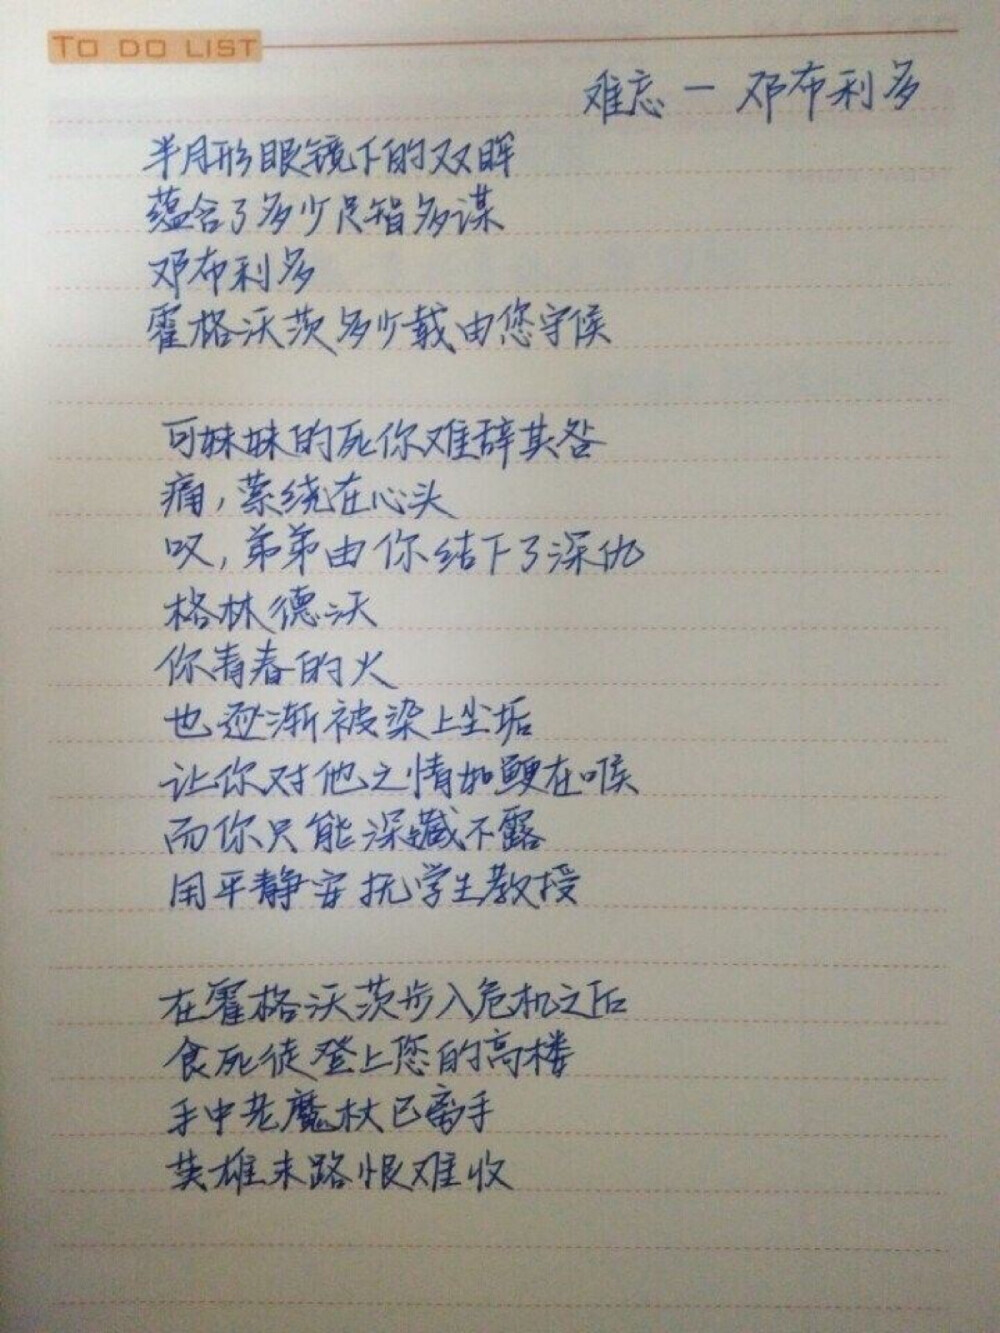 TO DO LIST
难忘一邓布利多
半月形眼镜下的双眸
蕴含了多少足智多谋
邓布利多
霍格沃茨多少载由您守候
可妹妹的死你难辞其咎
痛，萦绕在心头
叹，弟弟由你结下了深仇
格林德沃
你青春的火
也逐渐被染上尘垢
让你对他之情如鲠在喉
而你只能深藏不露
用平静安抚学生教授
在霍格沃茨步入危机之后
食死徒登上您的高楼
手中老魔杖已离手
英雄末路恨难收